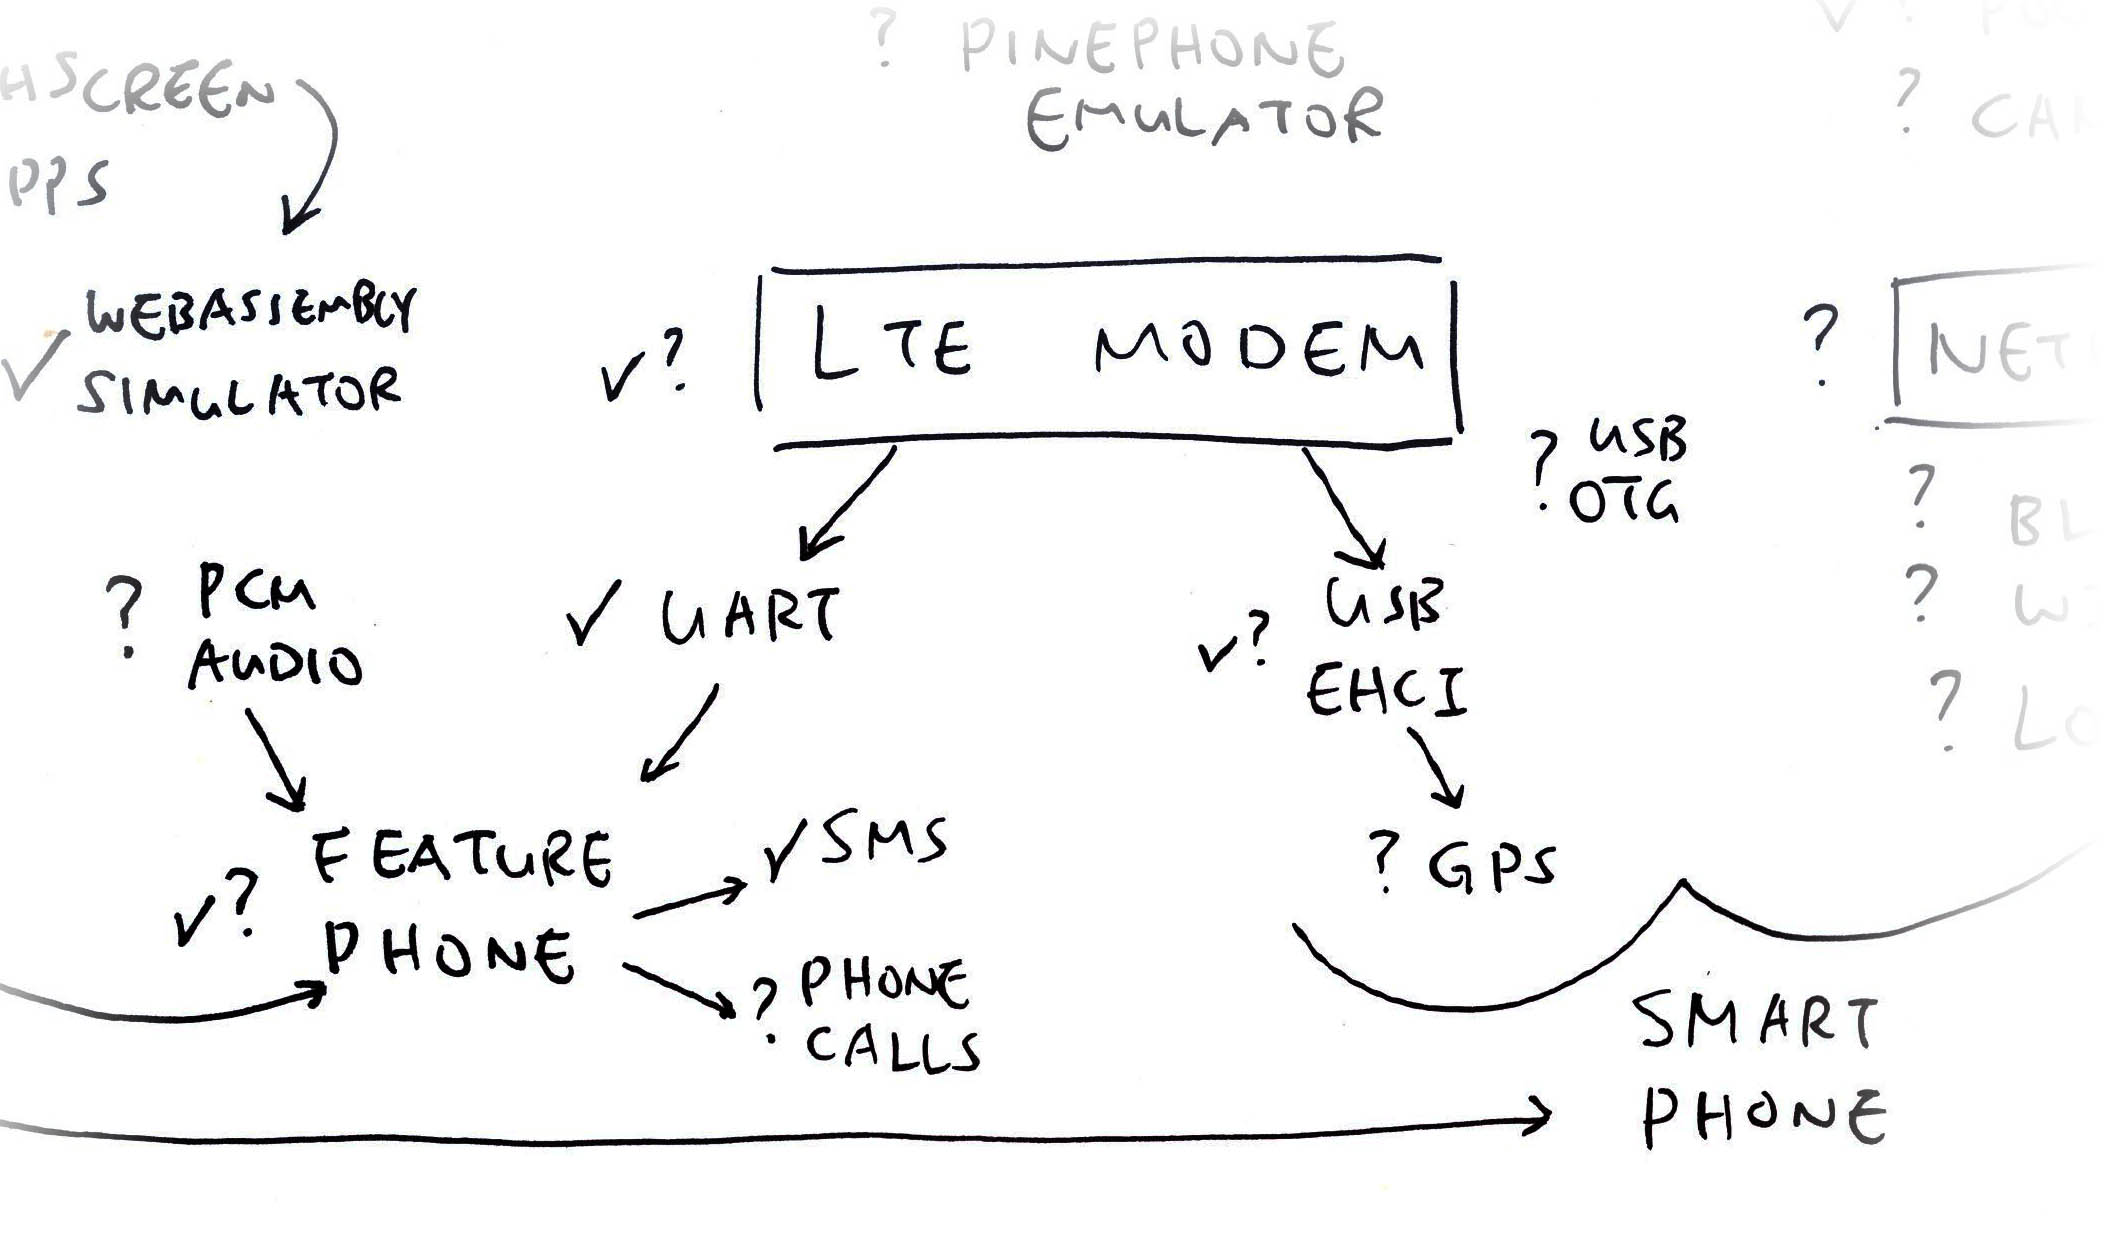 ? PINEPHONE
EMULATOR
SCREEN
PPS
?
WEBASSEMBLY
✓ SIMULATOR
✓? LTE MODEM
? NET
? USB
OTG
?
? PCM
AUDIO
✓ UART
✓? USB
EHCI
?
?
FEATURE
✓? PHONE
✓ SMS
? PHONE
CALLS
? GPS
SMART
PHONE